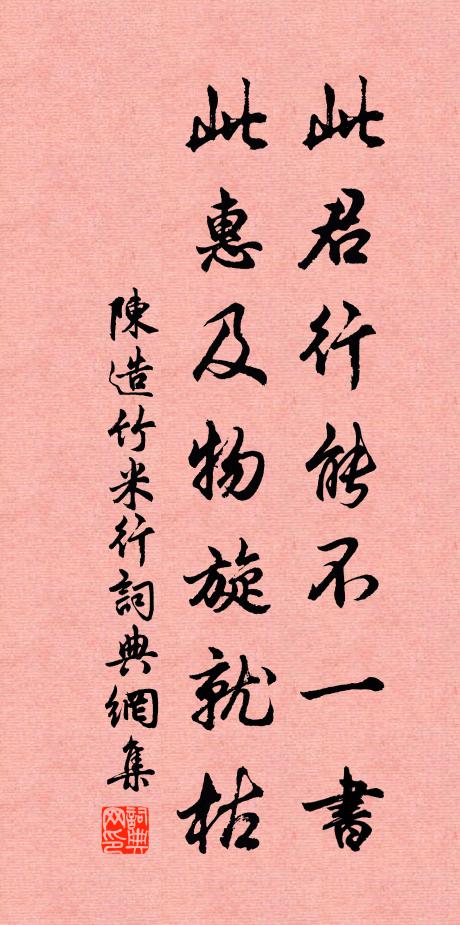 此君行能不一書
此惠及物旋就枯
陳造竹米行詞典網集
詞典网印